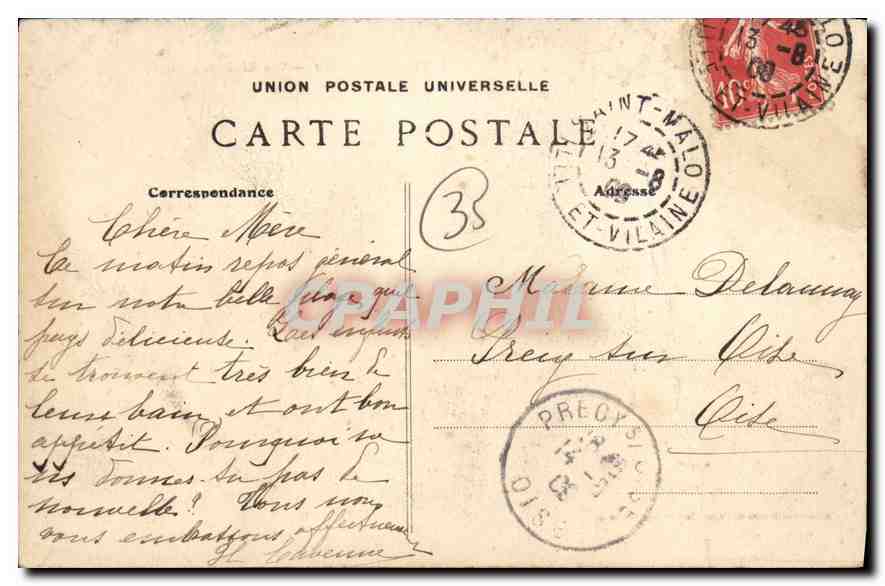 UNION POSTALE UNIVERSELLE
CARTE POSTALE
Correspondance
Adresse
35
Chère Mère
Ce matin repos général
sur notre belle plage quel
pays délicieuse. Les enfants
se trouvent très bien de
leurs bain, et ont bon
appétit. Pourquoi ne
us donnes tu pas de
nouvelle? Tous nous
vous embrassons affectueu
Madame Delaunay
Precy sur Oise
Oise
SAINT-MALO
17 45
13 -8
ILLE-ET-VILAINE
PRECY S/ OISE
OISE
10c
CPAPHIL